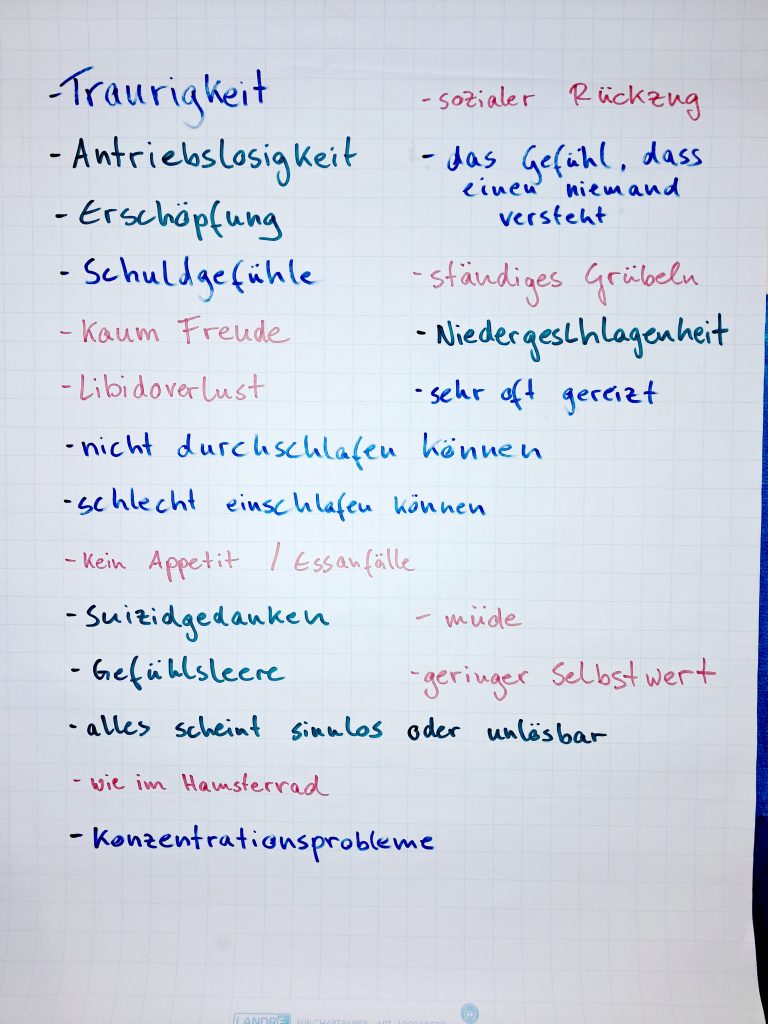 - Traurigkeit
- Antriebslosigkeit
- Erschöpfung
- Schuldgefühle
- Kaum Freude
- Libidoverlust
- nicht durchschlafen können
- schlecht einschlafen können
- Kein Appetit / Essanfälle
- Suizidgedanken
- Gefühlsleere
- alles scheint sinnlos oder unlösbar
- wie im Hamsterrad
- Konzentrationsprobleme
- sozialer Rückzug
- das Gefühl, dass
einen niemand
versteht
- ständiges Grübeln
- Niedergeschlagenheit
- sehr oft gereizt
- müde
- geringer Selbstwert
LANDRÉ